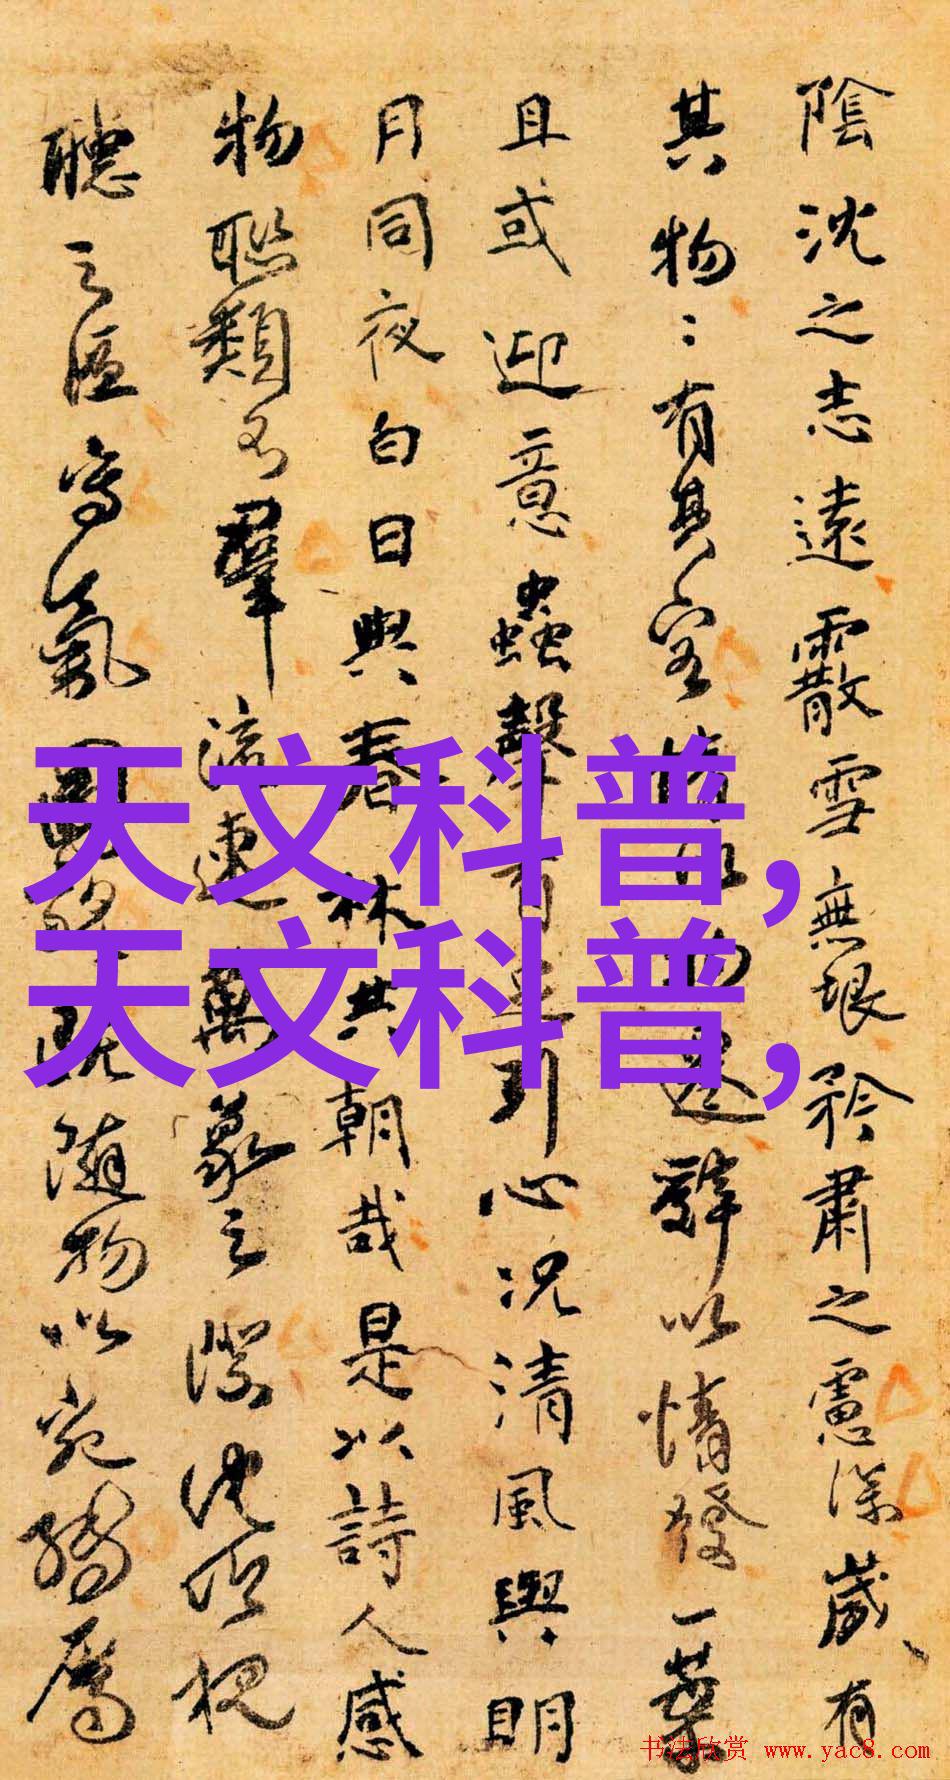 陰沈之志遠霰雪無垠矜肅之慮深歲有
其物々有其容情以物遷辭以情發一葉
且或迎意蟲聲有足引心況清風與明
月同夜白日與春林共朝哉是以詩人感
物聯類不羣流連萬象之際沈吟視
聽之區寫氣圖貌既隨物以宛轉屬
天文科普,
天文科普,
书法欣赏 www.yac8.com